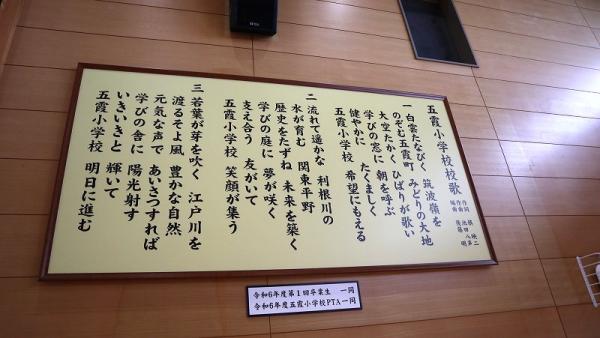 五霞小学校校歌
作詞
作曲
編曲
一 白雲たなびく 筑波嶺を
のぞむ五霞町 みどりの大地
大空たかく ひばりが歌い
学びの窓に 朝を呼ぶ
健やかに たくましく
五霞小学校 希望にもえる
二 流れて遥かな 利根川の
水が育む 関東平野
歴史をたずね 未来を築く
学びの庭に 夢が咲く
支え合う 友がいて
五霞小学校 笑顔が集う
三 若葉が芽を吹く 江戸川を
渡るそよ風 豊かな自然
元気な声で あいさつすれば
学びの舎に 陽光射す
いきいきと 輝いて
五霞小学校 明日に進む
令和6年度第1回卒業生 一同
令和6年度五霞小学校PTA一同